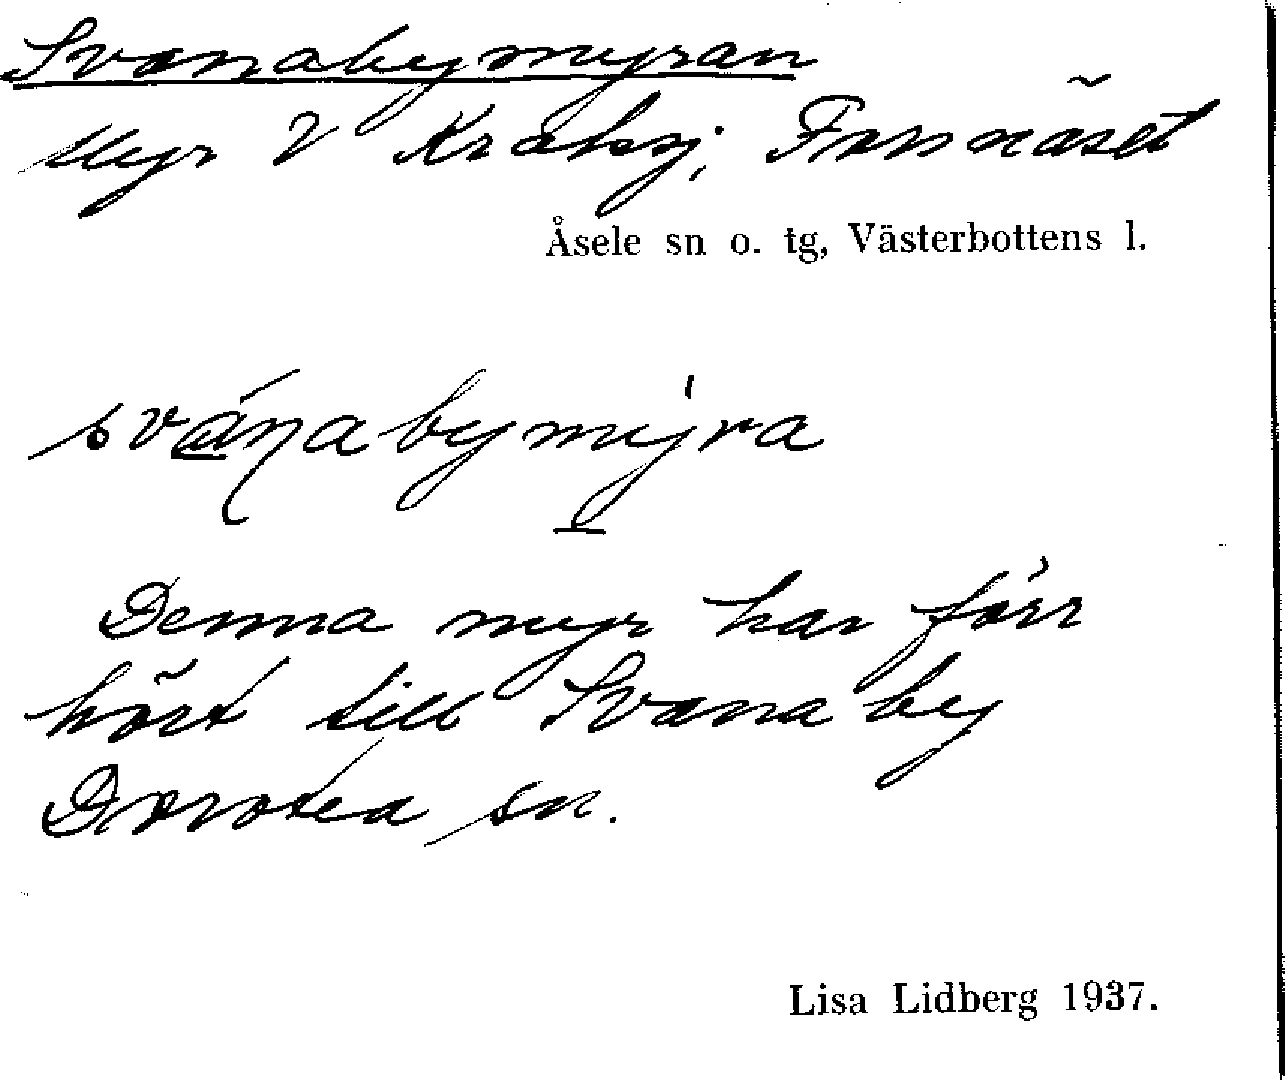 Svanabymyran
Myr V Kråksj, Tornnäset
Åsele sn o. tg, Västerbottens l.
svánabymy̍ra
Denna myr har förr
hört till Svanaby
Dorotea sn.
Lisa Lidberg 1937.